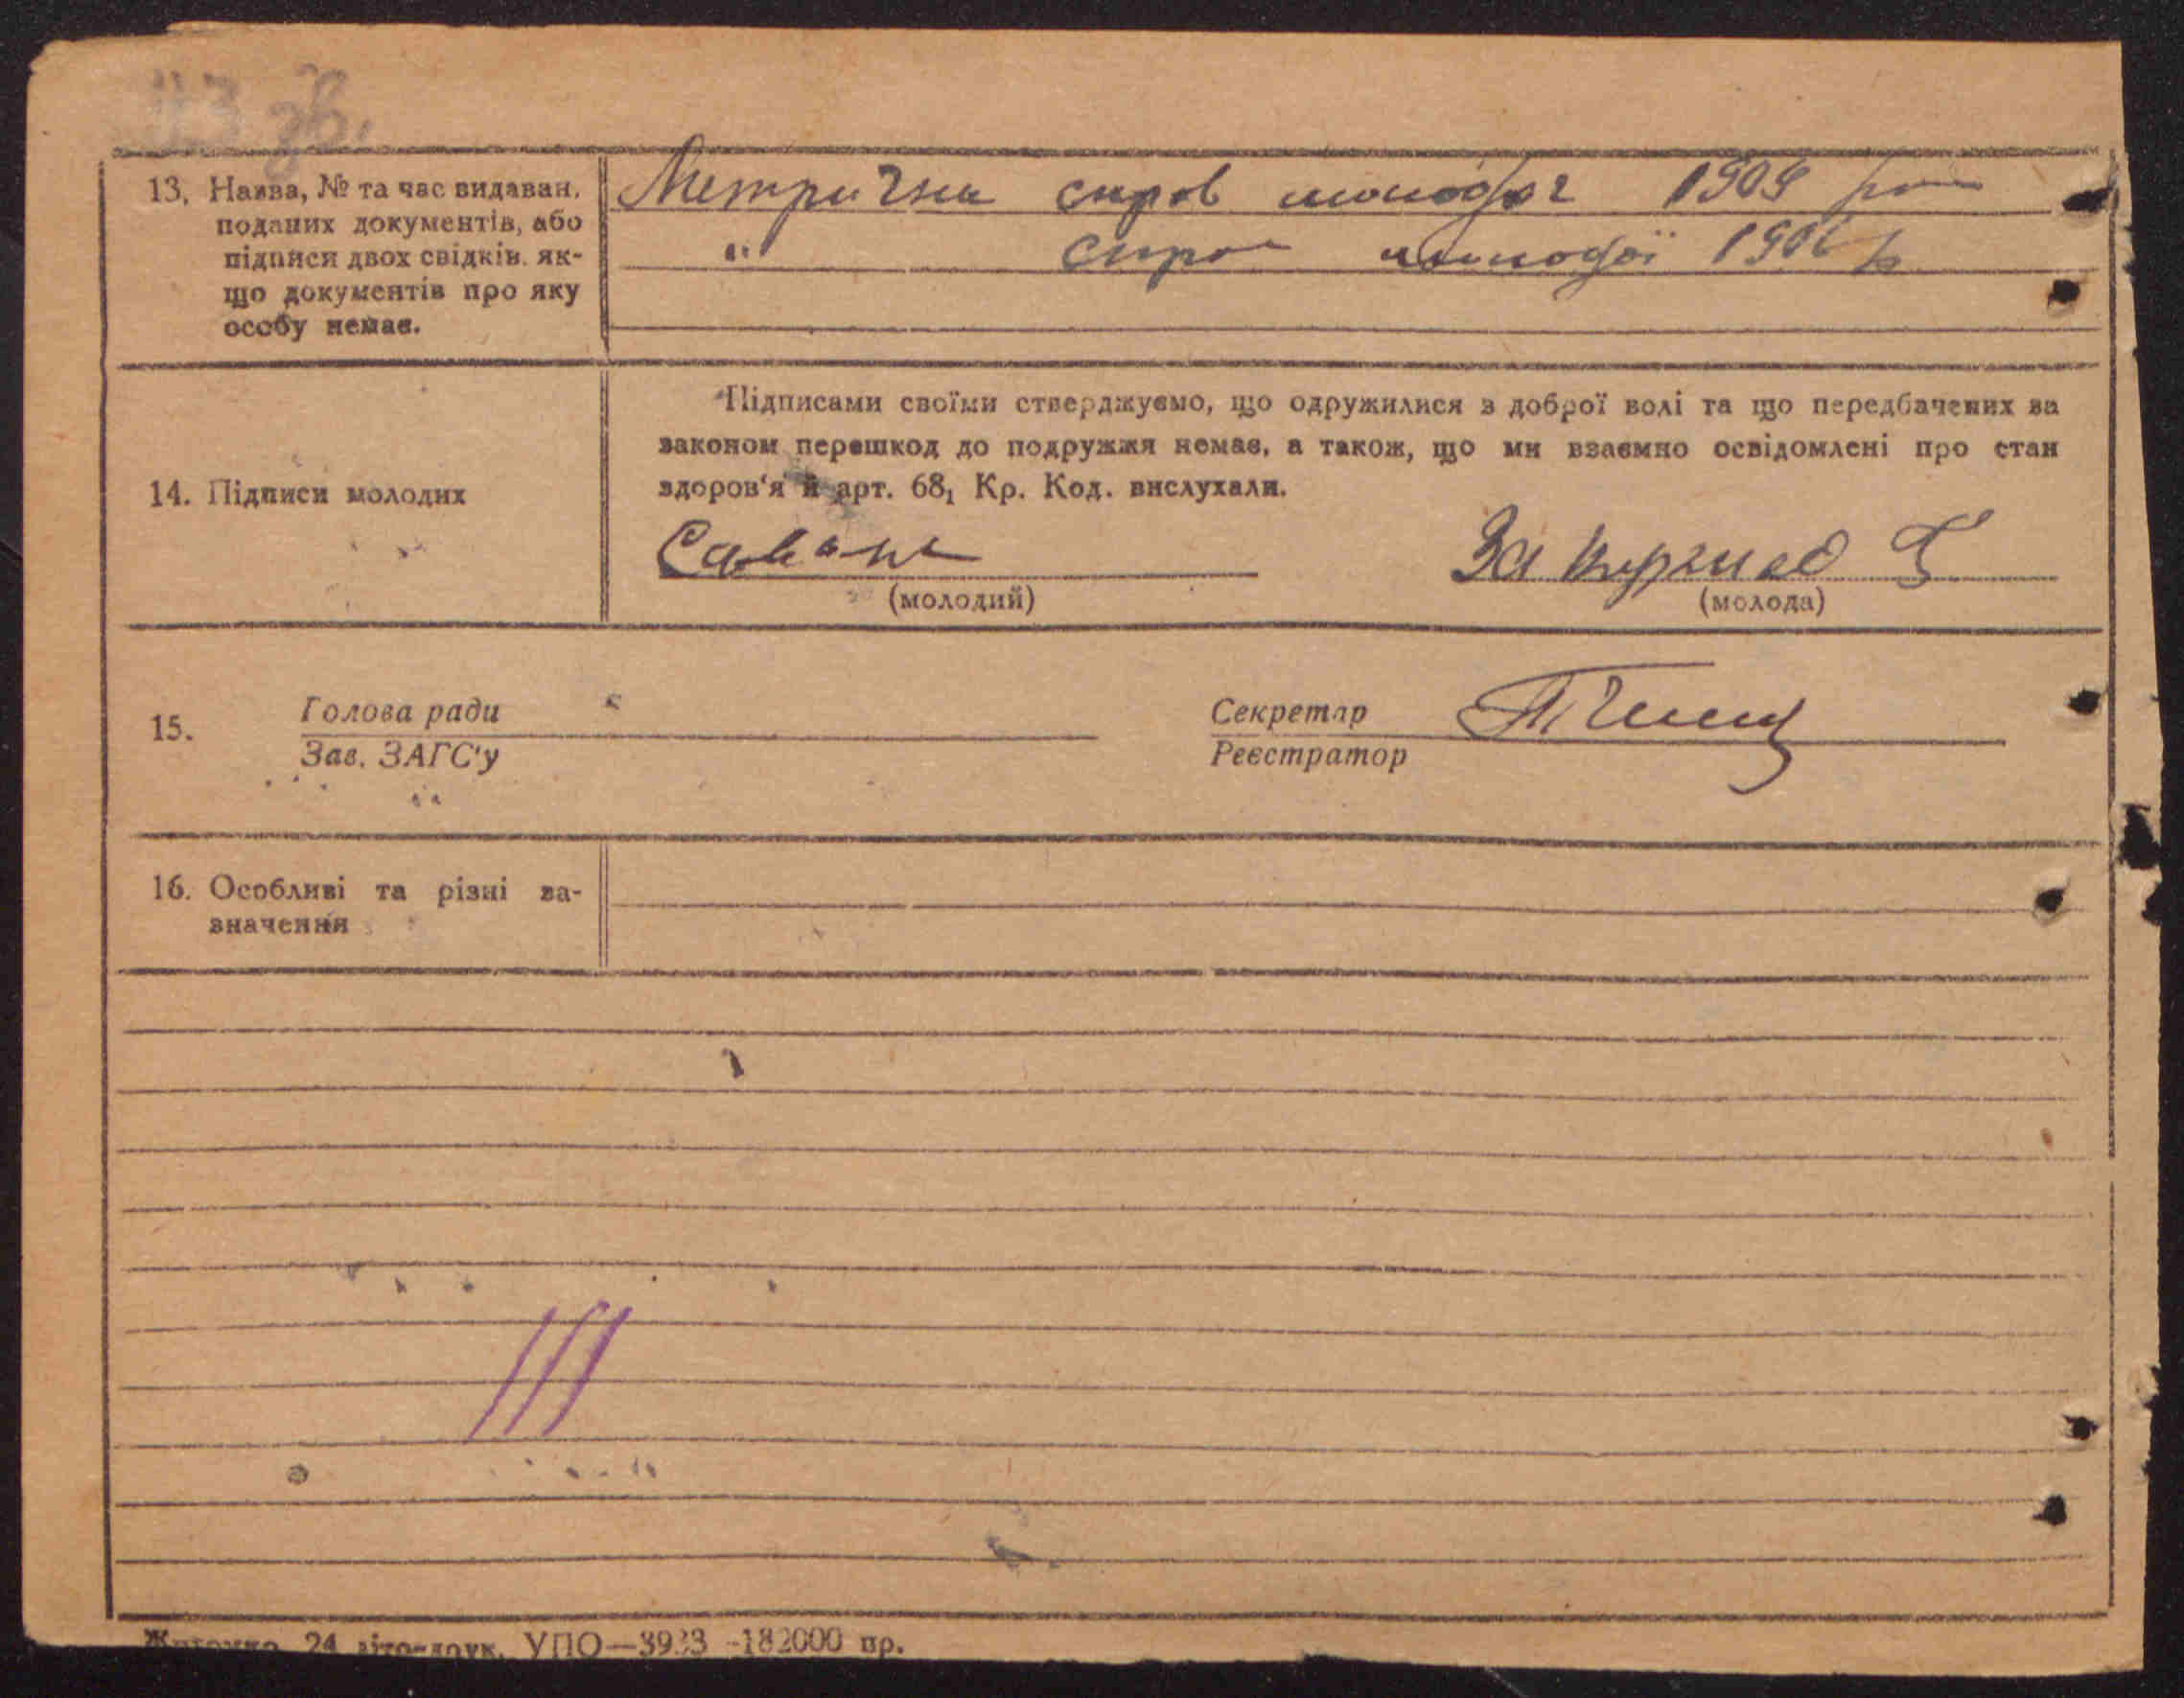 113 зв.
13. Назва, № та час видаван.
поданих документів, або
підписи двох свідків, як-
що документів про яку
особу немає.
Метрична справ молодог 1909 ро
" спра молодої 1906 р
14. Підписи молодих
Підписами своїми стверджуємо, що одружилися з доброї волі та що передбачених за
законом перешкод до подружжя немає, а також, що ми взаємно освідомлені про стан
здоров'я й арт. 68₁ Кр. Код. вислухали.
За
(молодий)
(молода)
15.
Голова ради
Зав. ЗАГС'у
Секретар
Реєстратор
16. Особливі та різні за-
значення
24 літо-друк. УПО—3933 -182000 пр.